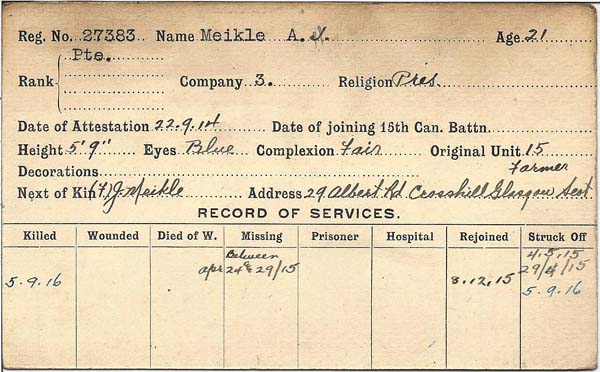 Reg. No. 27383 Name Meikle A. Age 21
Pte.
Rank Company 3. Religion Pres.
Date of Attestation 22.9.14 Date of joining 15th Can. Battn.
Height 5' 9" Eyes Blue Complexion Fair Original Unit 15
Decorations Farmer
Next of Kin (F) J. Meikle Address 29 Albert Rd Crosshill Glasgow Scot
RECORD OF SERVICES.
Killed Wounded Died of W. Missing Prisoner Hospital Rejoined Struck Off
Between 4.5.15
apr 24 & 29/15 29/4/15
5.9.16 8.12.15 5.9.16